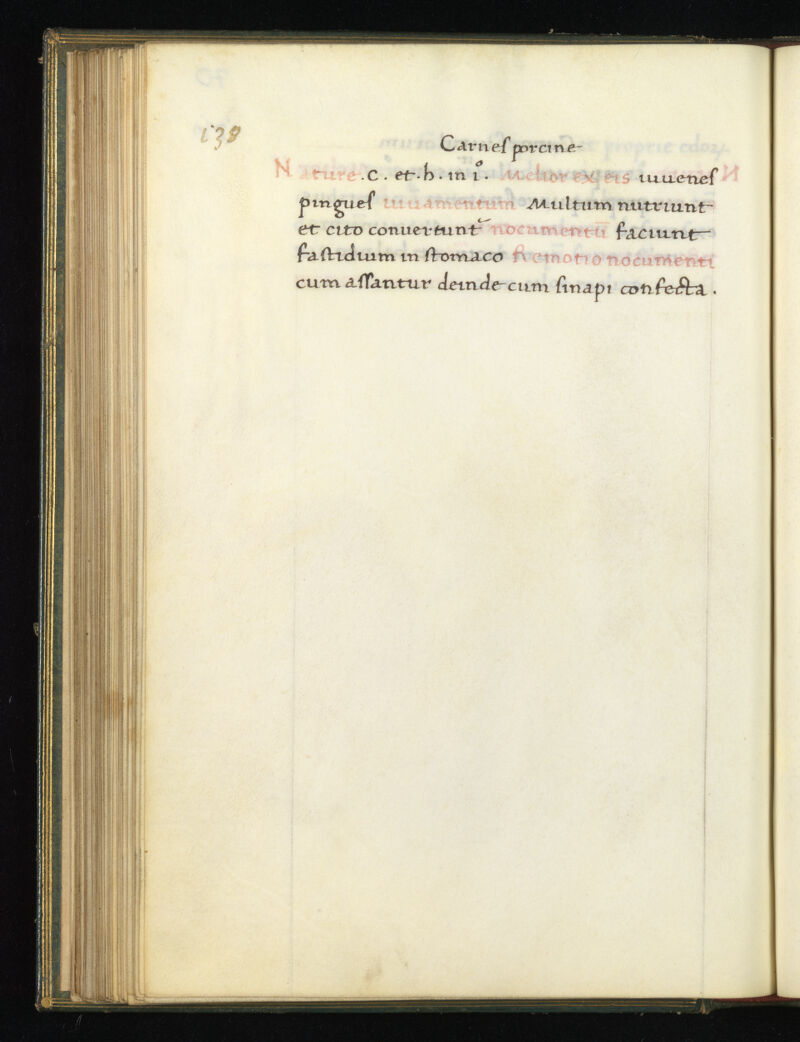 138
Carnes porcine
Nature .c. et .h. in i°. Melior ex eis iuuenes
pingues iuuamentum Multum nutriunt
et cito conuertunt nocumentū faciunt
fastidium in stomaco Remotio nocumenti
cum assantur deinde cum sinapi confecta .